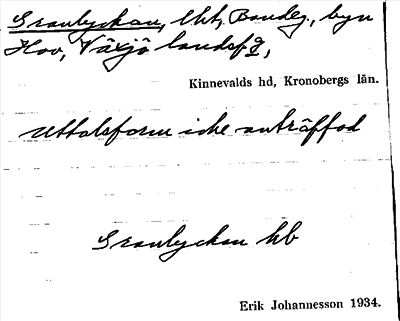 Granlyckan, lht, Bondeg, byn
Hov, Växjö landsfg,
Kinnevalds hd, Kronobergs län.
Uttalsform icke anträffad
Granlyckan hb
Erik Johannesson 1934.